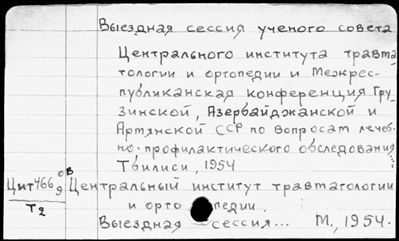 Выездная сессия ученого совета
Центрального института травма
тологии и ортопедии и Межрес-
публиканская конференция Гру
зинской, Азербайджанской и
Армянской ССР по вопросам лечеб-
но-профилактического обследования
Тбилиси, 1954
Цит 466 9 ОВ Центральный институт травматологии
Т2 и орто педии.
Выездная сессия... М., 1954.